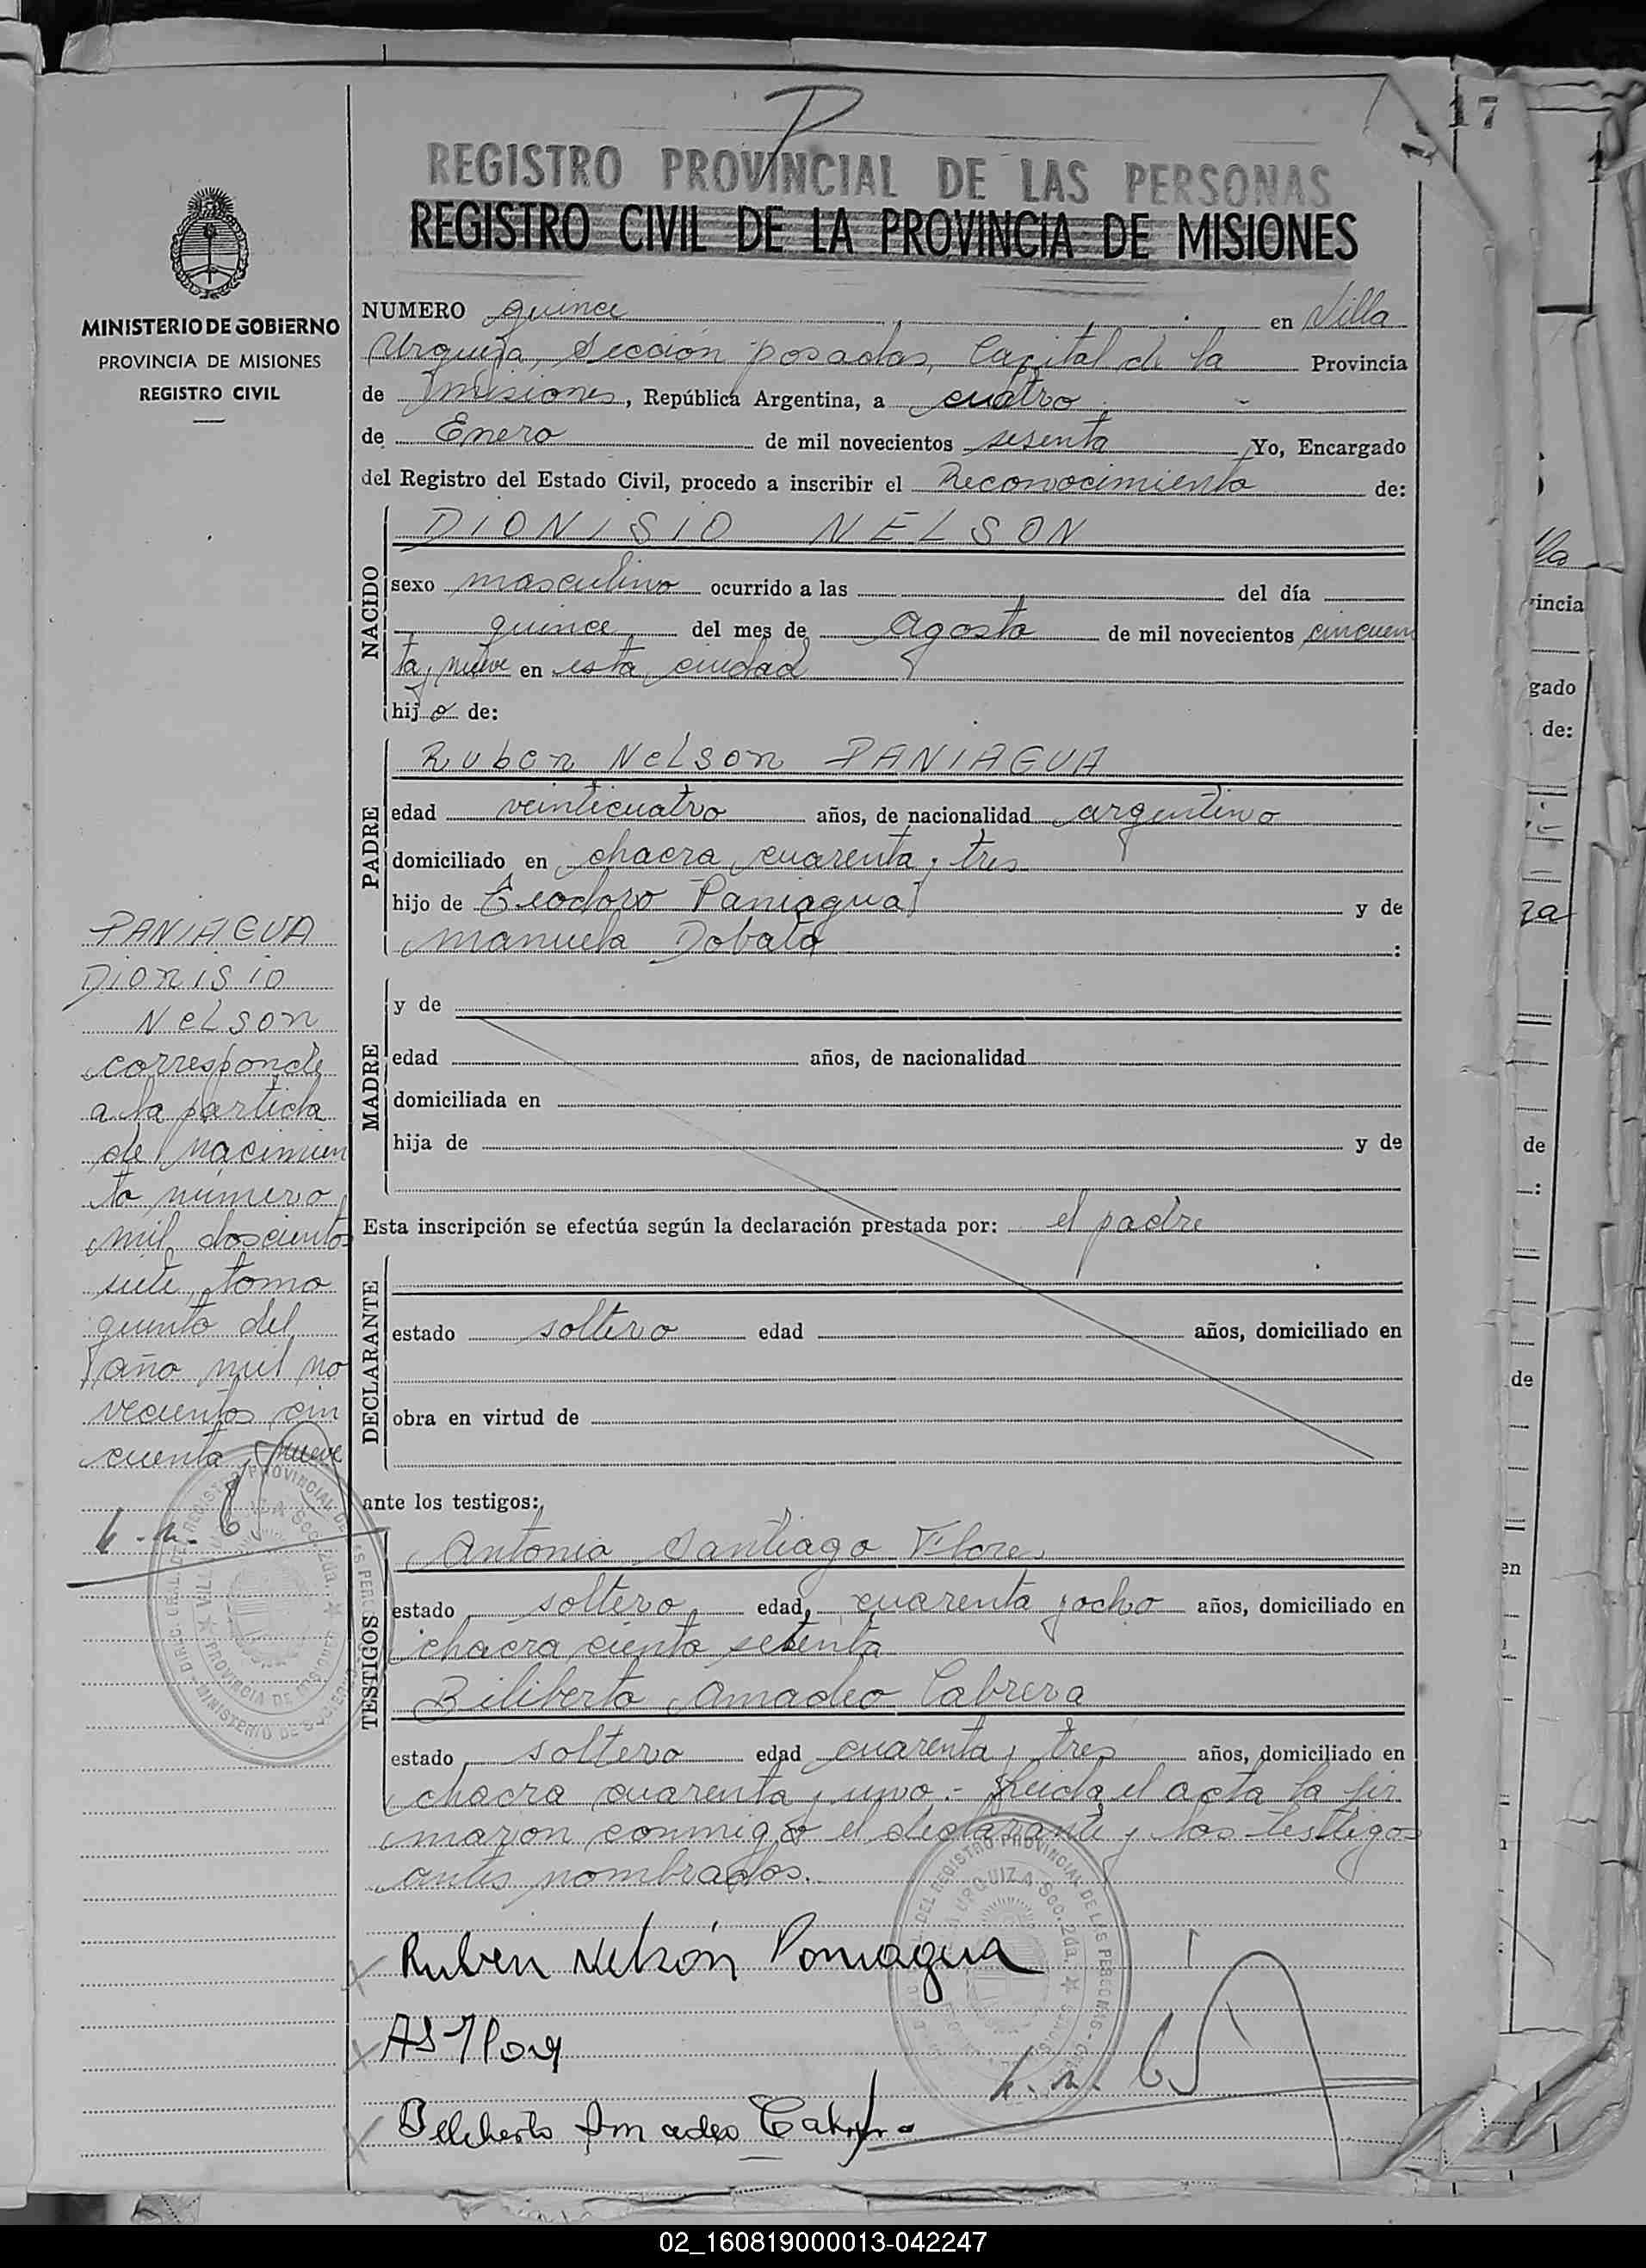 17
P
REGISTRO PROVINCIAL DE LAS PERSONAS
REGISTRO CIVIL DE LA PROVINCIA DE MISIONES
MINISTERIO DE GOBIERNO
PROVINCIA DE MISIONES
REGISTRO CIVIL
NUMERO quince en Villa
Urquiza, Sección posadas, Capital de la Provincia
de misiones, República Argentina, a cuatro
de Enero de mil novecientos sesenta Yo, Encargado
del Registro del Estado Civil, procedo a inscribir el Reconocimiento de:
NACIDO
DIONISIO NELSON
sexo masculino ocurrido a las del día
quince del mes de Agosto de mil novecientos cincuen
ta y nueve en esta ciudad
hijo de:
PADRE
Ruben Nelson PANIAGUA
edad veinticuatro años, de nacionalidad argentino
domiciliado en chacra cuarenta y tres
hijo de Teodoro Paniagua y de
manuela Dobato:
MADRE
y de
edad años, de nacionalidad
domiciliada en
hija de y de
Esta inscripción se efectúa según la declaración prestada por: el padre
DECLARANTE
estado soltero edad años, domiciliado en
obra en virtud de
ante los testigos:
TESTIGOS
Antonio Santiago Flores
estado soltero edad, cuarenta y ocho años, domiciliado en
chacra ciento setenta
Biliberto Amadeo Cabrera
estado soltero edad cuarenta y tres años, domiciliado en
chacra cuarenta y uno.- Leida el acta la fir
maron conmigo el declarante y los testigos
antes nombrados.
Ruben Nelson Paniagua
Amadeo
PANIAGUA
DIONISIO
Nelson
corresponde
a la partida
de nacimien
to número
mil doscientos
siete tomo
quinto del
año mil no
vecientos cin
cuenta y nueve
02_160819000013-042247